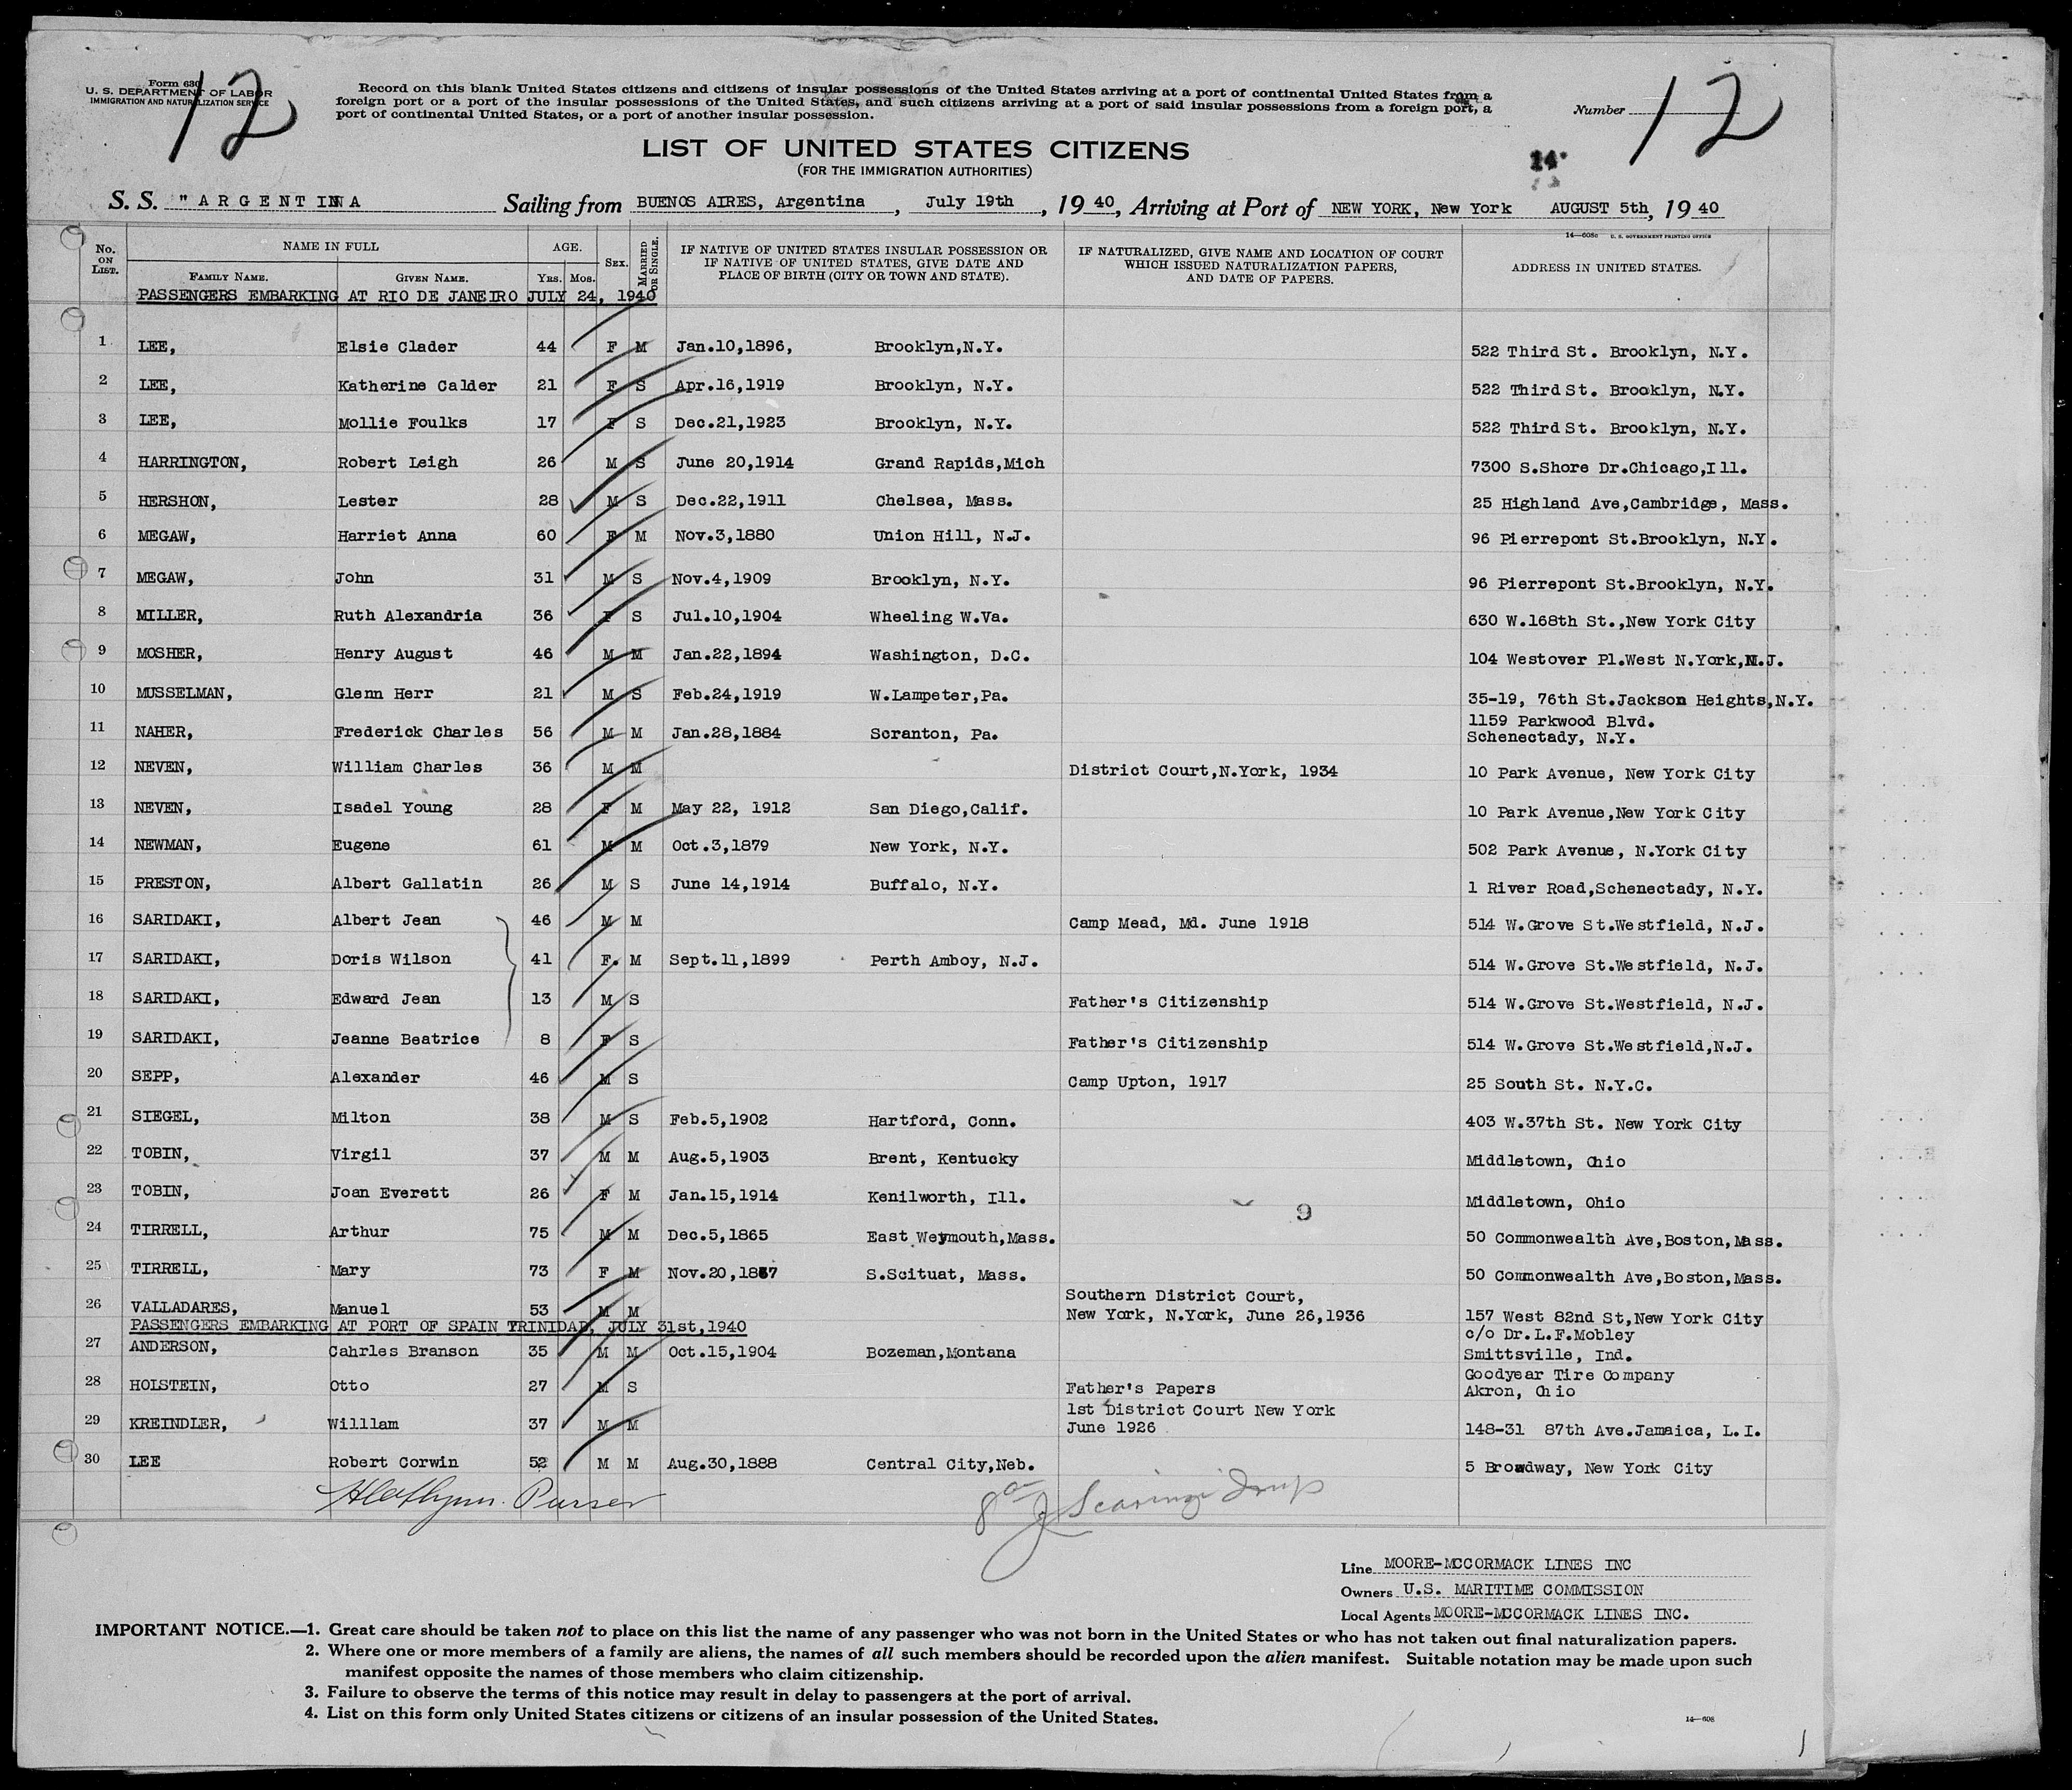 Form 630
U. S. DEPARTMENT OF LABOR
IMMIGRATION AND NATURALIZATION SERVICE
12
Record on this blank United States citizens and citizens of insular possessions of the United States arriving at a port of continental United States from a
foreign port or a port of the insular possessions of the United States, and such citizens arriving at a port of said insular possessions from a foreign port, a
port of continental United States, or a port of another insular possession.
Number 12
LIST OF UNITED STATES CITIZENS
(FOR THE IMMIGRATION AUTHORITIES)
14
S. S. "ARGENTINA Sailing from BUENOS AIRES, Argentina, July 19th, 1940, Arriving at Port of NEW YORK, New York AUGUST 5th, 1940
14—608c U. S. GOVERNMENT PRINTING OFFICE
No. ON LIST. NAME IN FULL FAMILY NAME. GIVEN NAME. AGE. YRS. MOS. SEX. MARRIED OR SINGLE. IF NATIVE OF UNITED STATES INSULAR POSSESSION OR IF NATIVE OF UNITED STATES, GIVE DATE AND PLACE OF BIRTH (CITY OR TOWN AND STATE). IF NATURALIZED, GIVE NAME AND LOCATION OF COURT WHICH ISSUED NATURALIZATION PAPERS, AND DATE OF PAPERS. ADDRESS IN UNITED STATES.
PASSENGERS EMBARKING AT RIO DE JANEIRO JULY 24, 1940
1 LEE, Elsie Clader 44 F M Jan.10,1896, Brooklyn,N.Y. 522 Third St. Brooklyn, N.Y.
2 LEE, Katherine Calder 21 F S Apr.16,1919 Brooklyn, N.Y. 522 Third St. Brooklyn, N.Y.
3 LEE, Mollie Foulks 17 F S Dec.21,1923 Brooklyn, N.Y. 522 Third St. Brooklyn, N.Y.
4 HARRINGTON, Robert Leigh 26 M S June 20,1914 Grand Rapids,Mich 7300 S.Shore Dr.Chicago,Ill.
5 HERSHON, Lester 28 M S Dec.22,1911 Chelsea, Mass. 25 Highland Ave,Cambridge, Mass.
6 MEGAW, Harriet Anna 60 F M Nov.3,1880 Union Hill, N.J. 96 Pierrepont St.Brooklyn, N.Y.
7 MEGAW, John 31 M S Nov.4,1909 Brooklyn, N.Y. 96 Pierrepont St.Brooklyn, N.Y.
8 MILLER, Ruth Alexandria 36 F S Jul.10,1904 Wheeling W.Va. 630 W.168th St.,New York City
9 MOSHER, Henry August 46 M M Jan.22,1894 Washington, D.C. 104 Westover Pl.West N.York,N.J.
10 MUSSELMAN, Glenn Herr 21 M S Feb.24,1919 W.Lampeter,Pa. 35-19, 76th St.Jackson Heights,N.Y.
11 NAHER, Frederick Charles 56 M M Jan.28,1884 Scranton, Pa. 1159 Parkwood Blvd. Schenectady, N.Y.
12 NEVEN, William Charles 36 M M District Court,N.York, 1934 10 Park Avenue, New York City
13 NEVEN, Isadel Young 28 F M May 22, 1912 San Diego,Calif. 10 Park Avenue,New York City
14 NEWMAN, Eugene 61 M M Oct.3,1879 New York, N.Y. 502 Park Avenue, N.York City
15 PRESTON, Albert Gallatin 26 M S June 14,1914 Buffalo, N.Y. 1 River Road,Schenectady, N.Y.
16 SARIDAKI, Albert Jean 46 M M Camp Mead, Md. June 1918 514 W.Grove St.Westfield, N.J.
17 SARIDAKI, Doris Wilson 41 F. M Sept.11,1899 Perth Amboy, N.J. 514 W.Grove St.Westfield, N.J.
18 SARIDAKI, Edward Jean 13 M S Father's Citizenship 514 W.Grove St.Westfield, N.J.
19 SARIDAKI, Jeanne Beatrice 8 F S Father's Citizenship 514 W.Grove St.Westfield,N.J.
20 SEPP, Alexander 46 M S Camp Upton, 1917 25 South St. N.Y.C.
21 SIEGEL, Milton 38 M S Feb.5,1902 Hartford, Conn. 403 W.37th St. New York City
22 TOBIN, Virgil 37 M M Aug.5,1903 Brent, Kentucky Middletown, Ohio
23 TOBIN, Joan Everett 26 F M Jan.15,1914 Kenilworth, Ill. Middletown, Ohio
9
24 TIRRELL, Arthur 75 M M Dec.5,1865 East Weymouth,Mass. 50 Commonwealth Ave,Boston,Mass.
25 TIRRELL, Mary 73 F M Nov.20,1867 S.Scituat, Mass. 50 Commonwealth Ave,Boston,Mass.
26 VALLADARES, Manuel 53 M M Southern District Court, New York, N.York, June 26,1936 157 West 82nd St,New York City
PASSENGERS EMBARKING AT PORT OF SPAIN TRINIDAD, JULY 31st,1940
27 ANDERSON, Cahrles Branson 35 M M Oct.15,1904 Bozeman,Montana c/o Dr.L.F.Mobley Smittsville, Ind.
28 HOLSTEIN, Otto 27 M S Father's Papers Goodyear Tire Company Akron, Ohio
29 KREINDLER, Willlam 37 M M 1st District Court New York June 1926 148-31 87th Ave.Jamaica, L.I.
30 LEE Robert Corwin 52 M M Aug.30,1888 Central City,Neb. 5 Broadway, New York City
Purser
Line MOORE-MCCORMACK LINES INC
Owners U.S. MARITIME COMMISSION
Local Agents MOORE-MCCORMACK LINES INC.
IMPORTANT NOTICE.—1. Great care should be taken not to place on this list the name of any passenger who was not born in the United States or who has not taken out final naturalization papers.
2. Where one or more members of a family are aliens, the names of all such members should be recorded upon the alien manifest. Suitable notation may be made upon such
manifest opposite the names of those members who claim citizenship.
3. Failure to observe the terms of this notice may result in delay to passengers at the port of arrival.
4. List on this form only United States citizens or citizens of an insular possession of the United States.
14—608